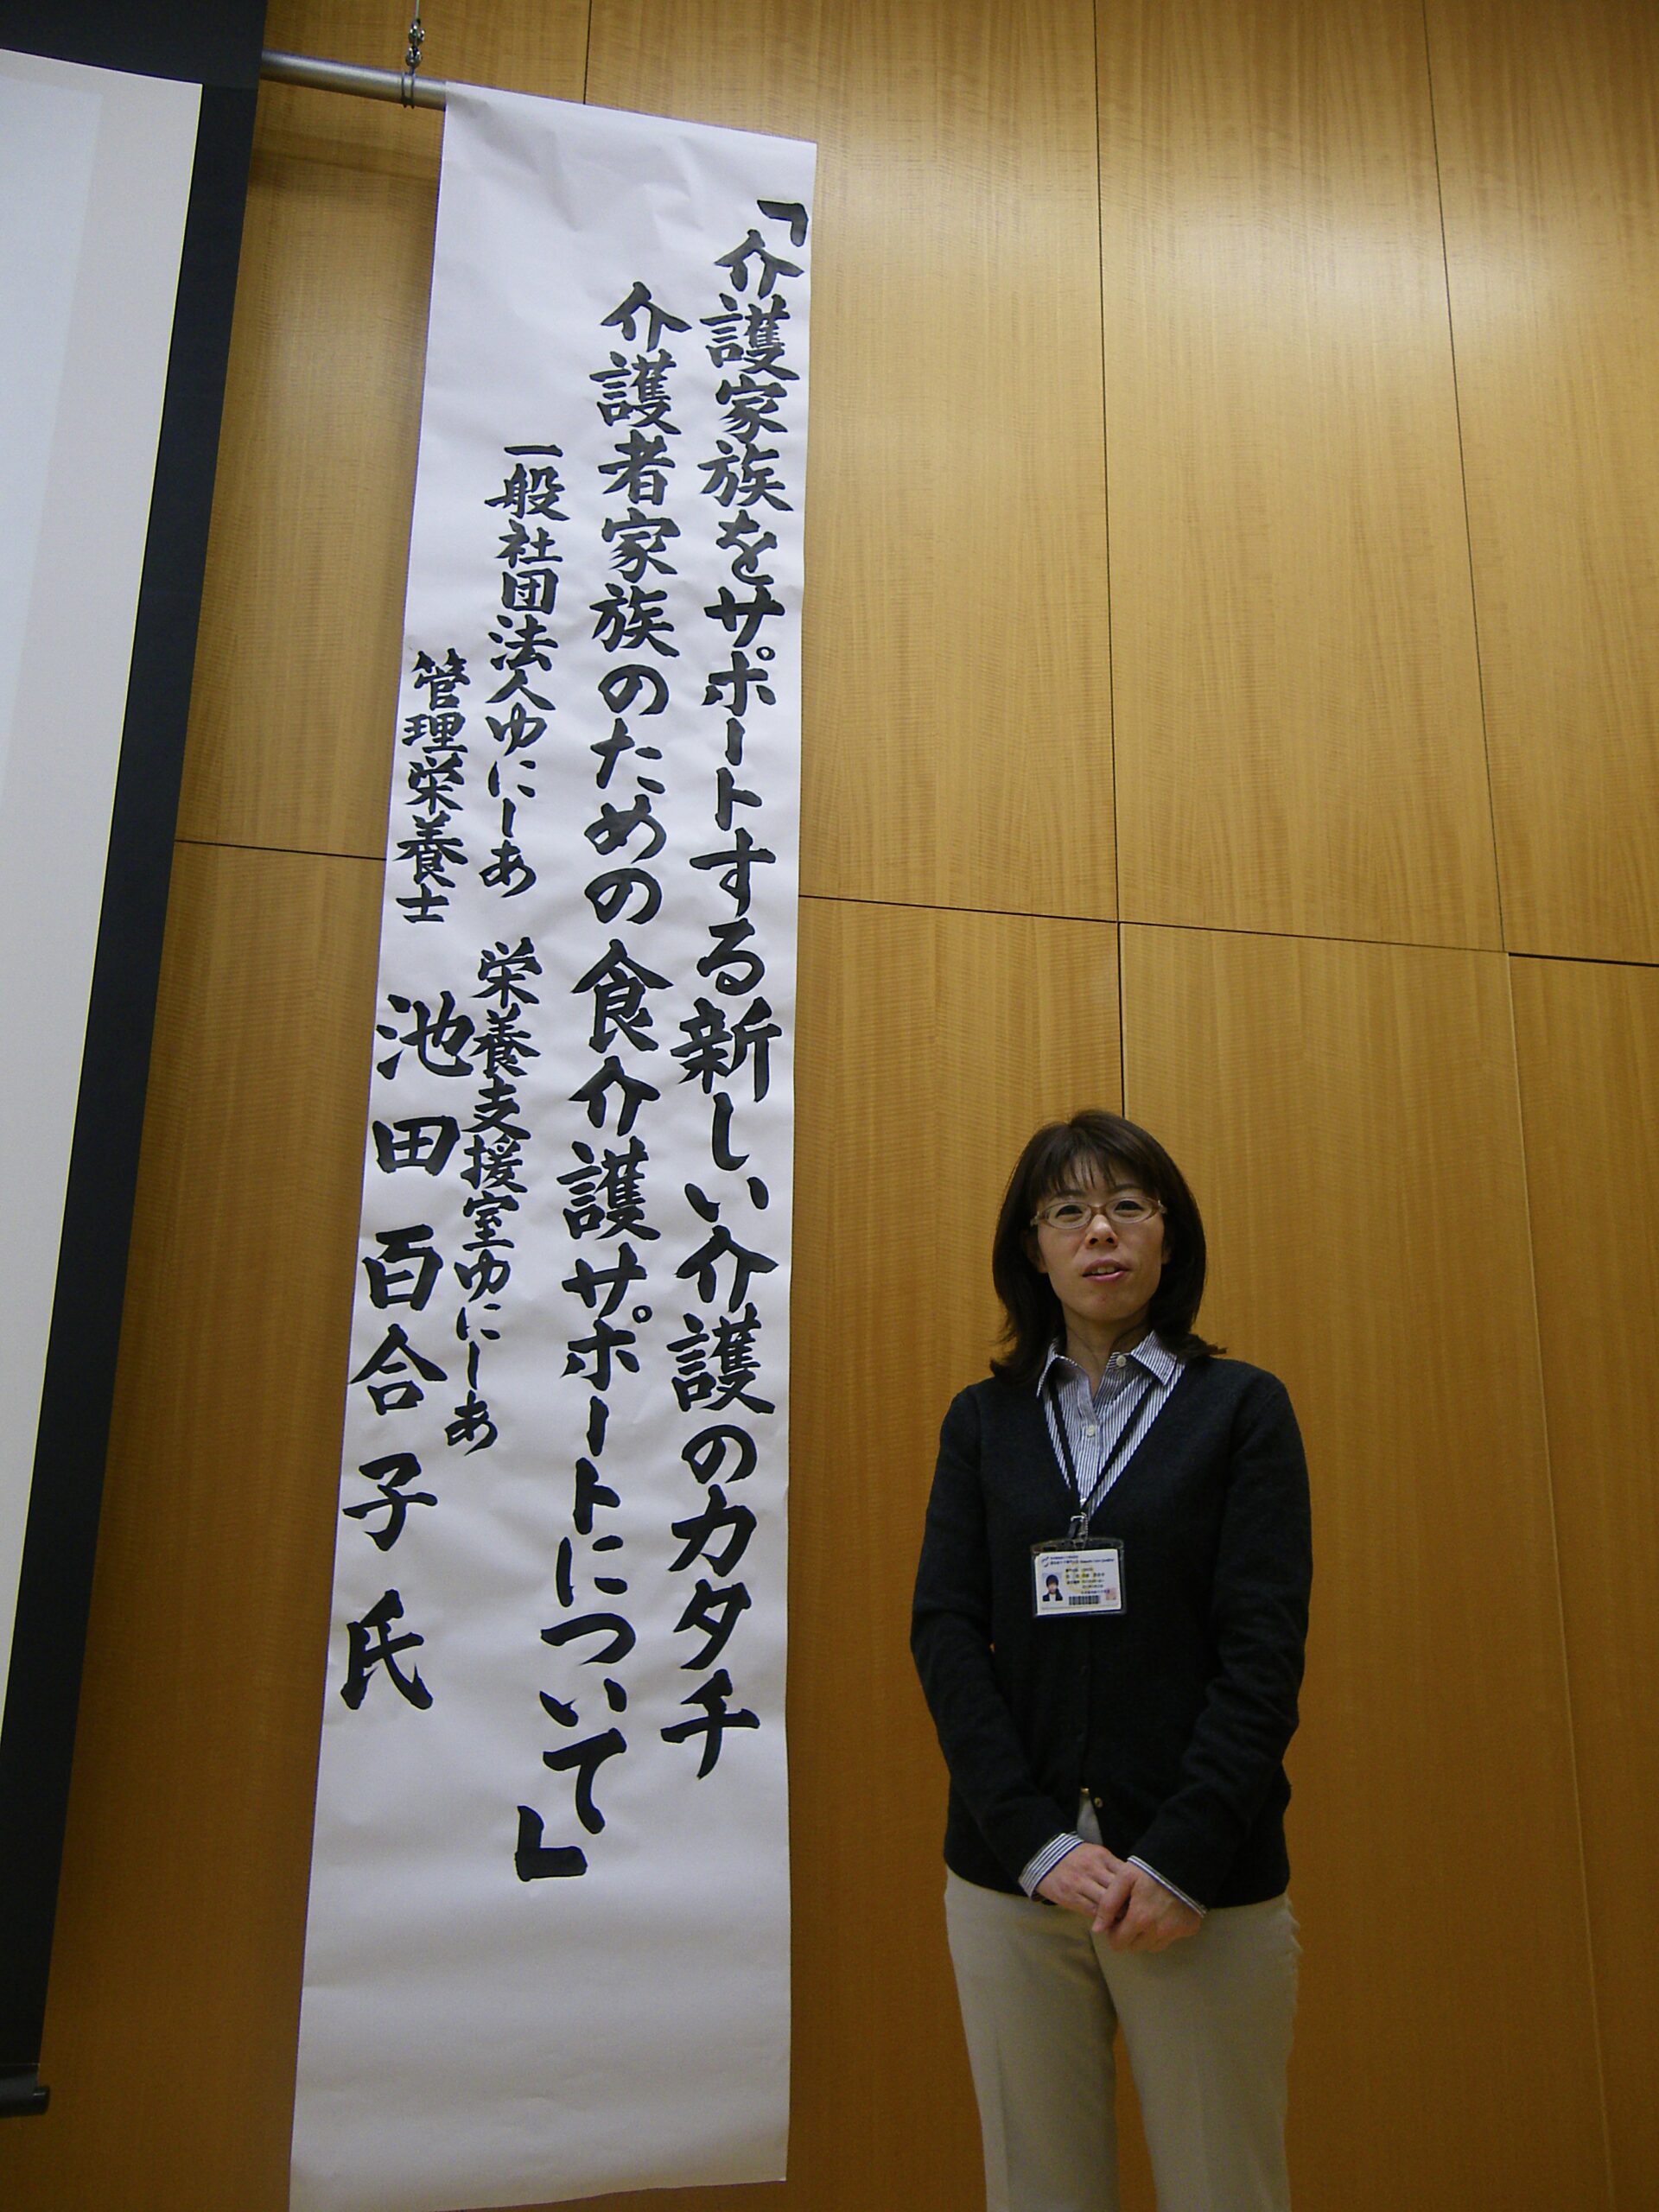 「介護家族をサポートする新しい介護のカタチ
介護者家族のための食介護サポートについて」
一般社団法人ゆにしあ 栄養支援室ゆにしあ
管理栄養士 池田 百合子 氏